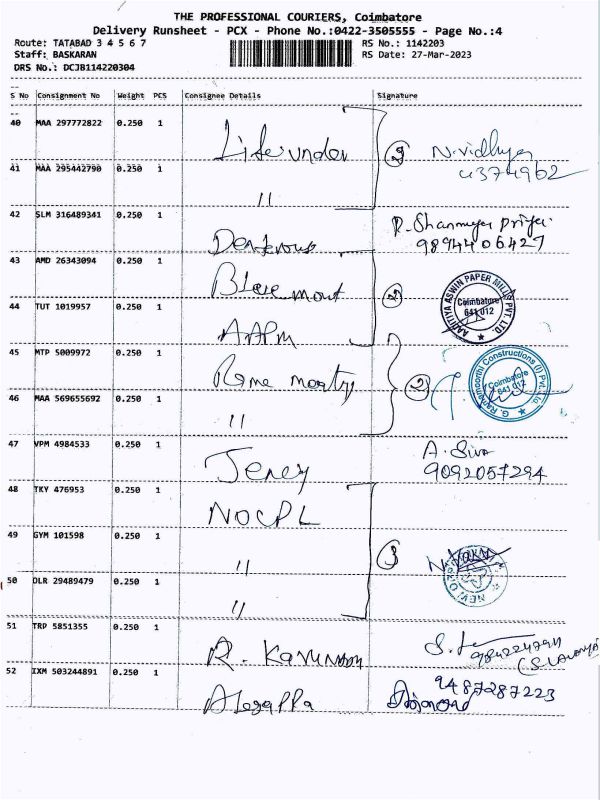 THE PROFESSIONAL COURIERS, Coimbatore
Delivery Runsheet - PCX - Phone No.:0422-3505555 - Page No.:4
Route: TATABAD 3 4 5 6 7
RS No.: 1142203
Staff: BASKARAN
RS Date: 27-Mar-2023
DRS No.: DCJB114220304
S No Consignment No Weight PCS Consignee Details Signature
40 MAA 297772822 0.250 1
2 N. Vidhya
41 MAA 295442790 0.250 1
"
42 SLM 316489341 0.250 1
9894406427
43 AMD 26343094 0.250 1 Blare mont
2 AADITYA ASWIN PAPER MILLS PVT. LTD. Coimbatore 641 012
44 TUT 1019957 0.250 1 AAPM
45 MTP 5009972 0.250 1
2 Constructions (I) Pvt. Coimbatore 641 012
46 MAA 569655692 0.250 1 "
47 VPM 4984533 0.250 1 A. Siva
9092057294
48 TKY 476953 0.250 1 NOCPL
49 GYM 101598 0.250 1 " 3
50 DLR 29489479 0.250 1 "
51 TRP 5851355 0.250 1
52 IXM 503244891 0.250 1 Alagappa 9487287223